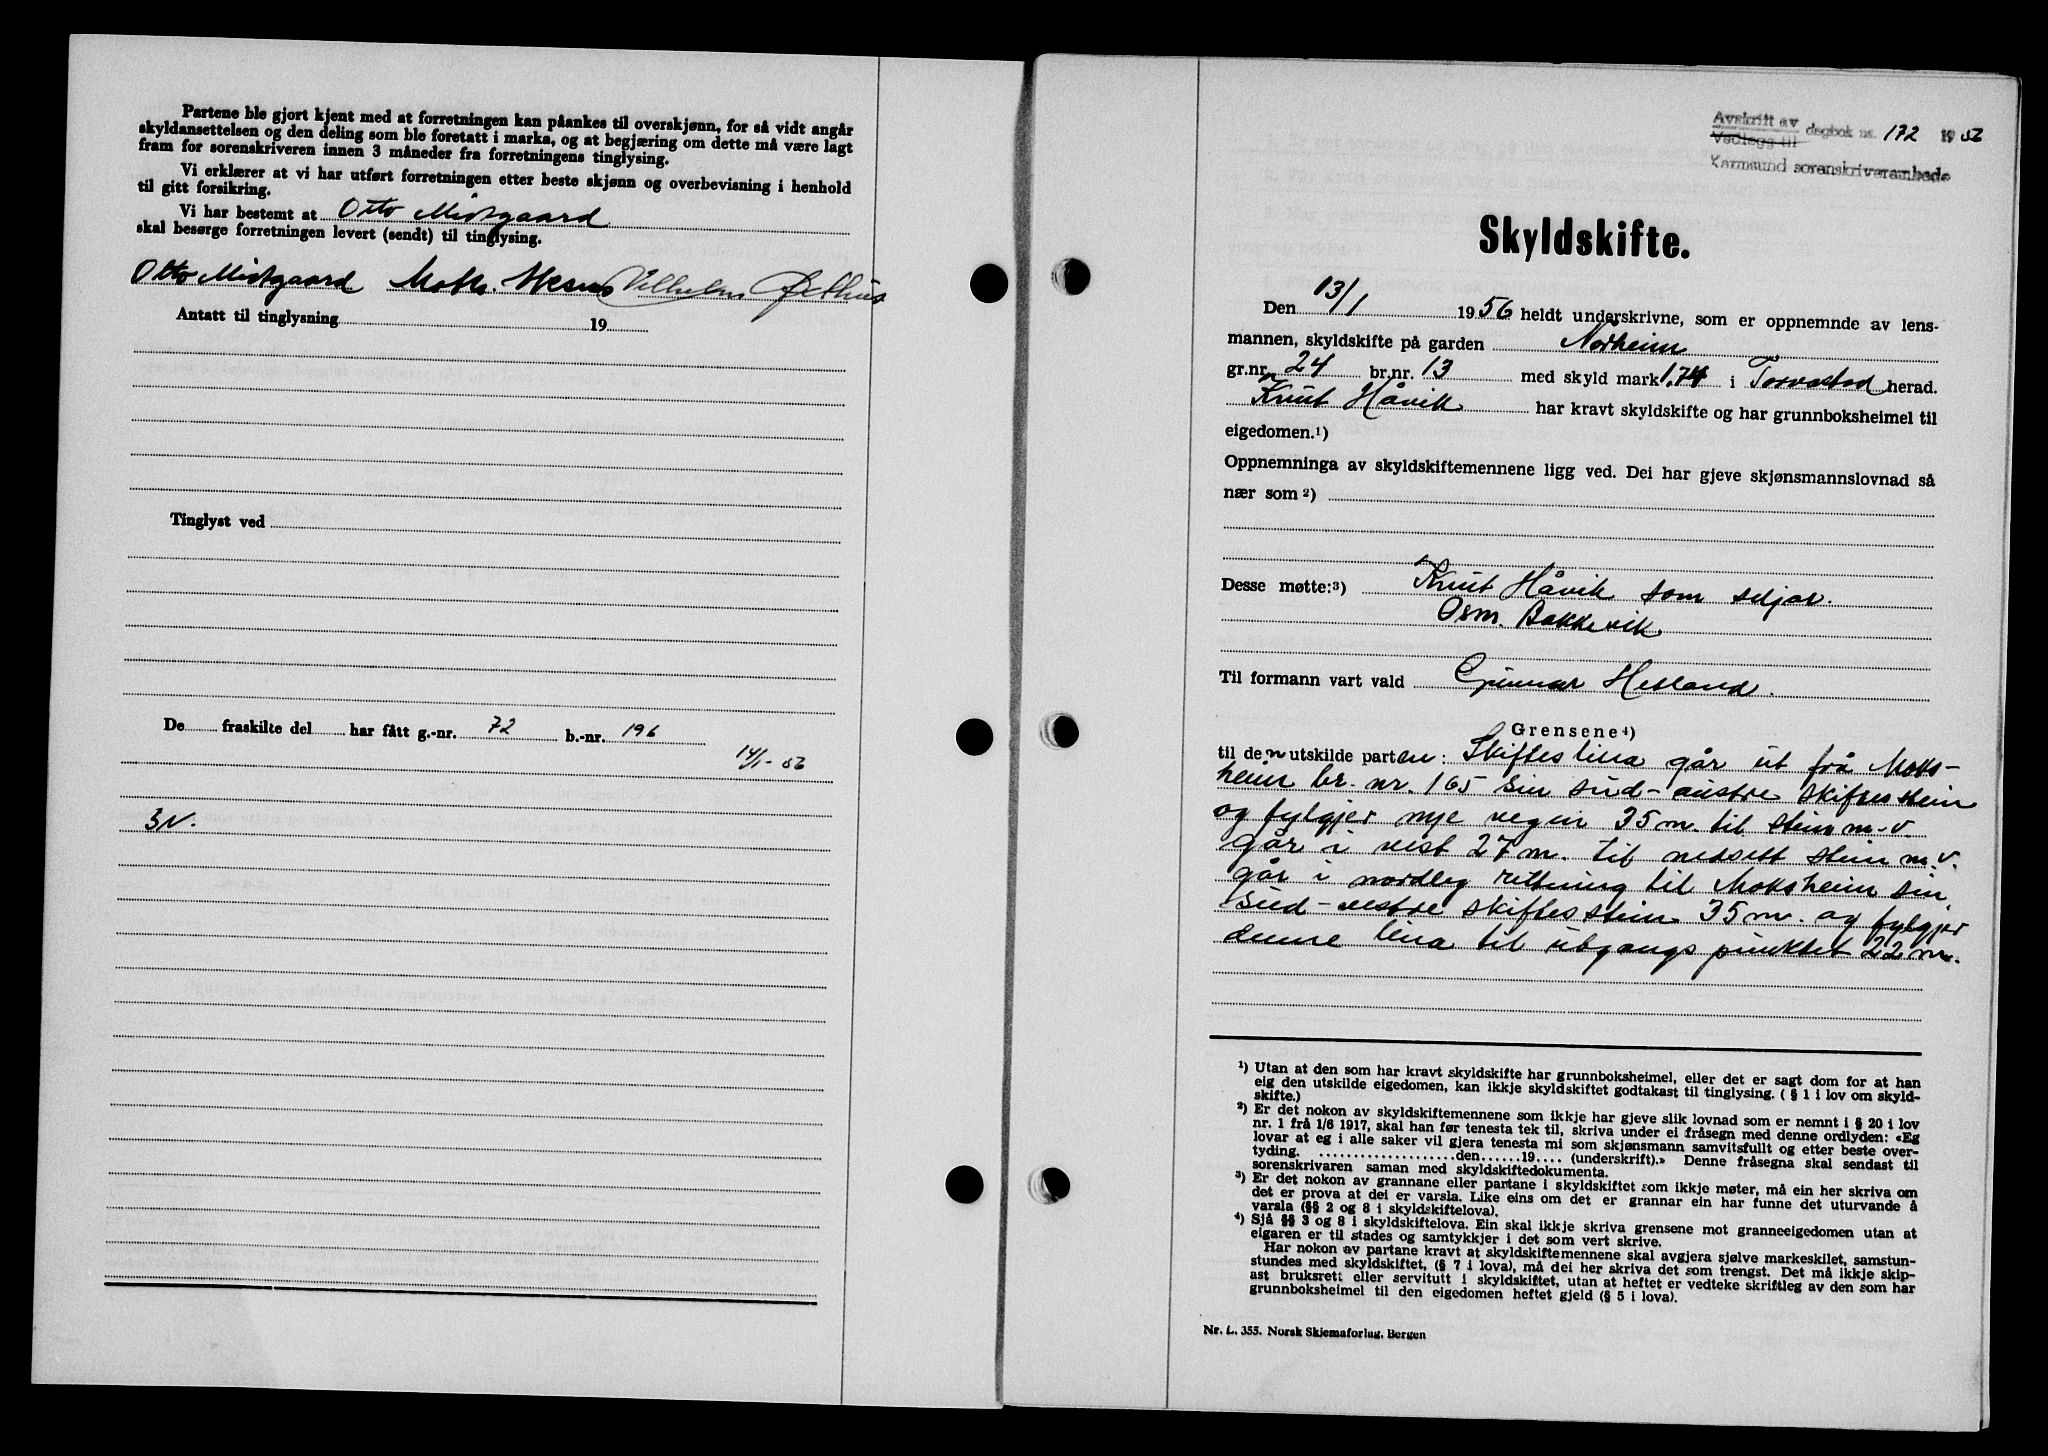 Partene ble gjort kjent med at forretningen kan påankes til overskjønn, for så vidt angår
skyldansettelsen og den deling som ble foretatt i marka, og at begjæring om dette må være lagt
fram for sorenskriveren innen 3 måneder fra forretningens tinglysing.
Vi erklærer at vi har utført forretningen etter beste skjønn og overbevisning i henhold
til gitt forsikring.
Vi har bestemt at Otto Mistgaard
skal besørge forretningen levert (sendt) til tinglysing.
Otto Mistgaard Vilhelm
Antatt til tinglysning 19
Tinglyst ved
De fraskilte del har fått g.-nr. 72 b.-nr. 196
14/1-56
Avskrift av
Vedlegg til dagbok nr. 172 1956
Karmsund sorenskriverembede
Skyldskifte.
Den 13/1 1956 heldt underskrivne, som er oppnemnde av lens-
mannen, skyldskifte på garden Norheim
gr.nr. 24 br.nr. 13 med skyld mark 1,74 i Torvastad herad.
Knut Håvik har kravt skyldskifte og har grunnboksheimel til
eigedomen.1)
Oppnemninga av skyldskiftemennene ligg ved. Dei har gjeve skjønsmannslovnad så
nær som 2)
Desse møtte:3) Knut Håvik som seljar.
Osm. Bakkevik
Til formann vart vald Gunnar Hesland.
Grensene4)
til den utskilde parten: Skifteslina går ut frå Moks-
heim br. nr. 165 sin sud-austre skiftesstein
og fylgjer nye vegen 35 m. til stein m.v.
går i vest 27 m. til nedsett stein m.v.
går i nordleg rettning til Moksheim sin
sud-vestre skiftesstein 35 m. og fylgjer
denne lina til utgangspunktet 22 m.
1) Utan at den som har kravt skyldskifte har grunnboksheimel, eller det er sagt dom for at han
eig den utskilde eigedomen, kan ikkje skyldskiftet godtakast til tinglysing. (§ 1 i lov om skyld-
skifte.)
2) Er det nokon av skyldskiftemennene som ikkje har gjeve slik lovnad som er nemnt i § 20 i lov
nr. 1 frå 1/6 1917, skal han før tenesta tek til, skriva under ei fråsegn med denne ordlyden: «Eg
lovar at eg i alle saker vil gjera tenesta mi som skjønsmann samvitsfullt og etter beste over-
tyding. ....................den......19.... (underskrift).» Denne fråsegna skal sendast til
sorenskrivaren saman med skyldskiftedokumenta.
3) Er det nokon av grannane eller partane i skyldskiftet som ikkje møter, må ein her skriva om
det er prova at dei er varsla. Like eins om det er grannar ein har funne det uturvande å
varsla (§§ 2 og 8 i skyldskiftelova).
4) Sjå §§ 3 og 8 i skyldskiftelova. Ein skal ikkje skriva grensene mot granneeigedomen utan at
eigaren er til stades og samtykkjer i det som vert skrive.
Har nokon av partane kravt at skyldskiftemennene skal avgjera sjølve markeskilet, samstun-
stundes med skyldskiftet, (§ 7 i lova), må dei her skriva det som trengst. Det må ikkje skip-
ast bruksrett eller servitutt i skyldskiftet, utan at heftet er vedteke skriftleg av den som har
grunnboksheimel til den eigedomen heftet gjeld (§ 5 i lova).
Nr. L. 355. Norsk Skjemaforlag, Bergen